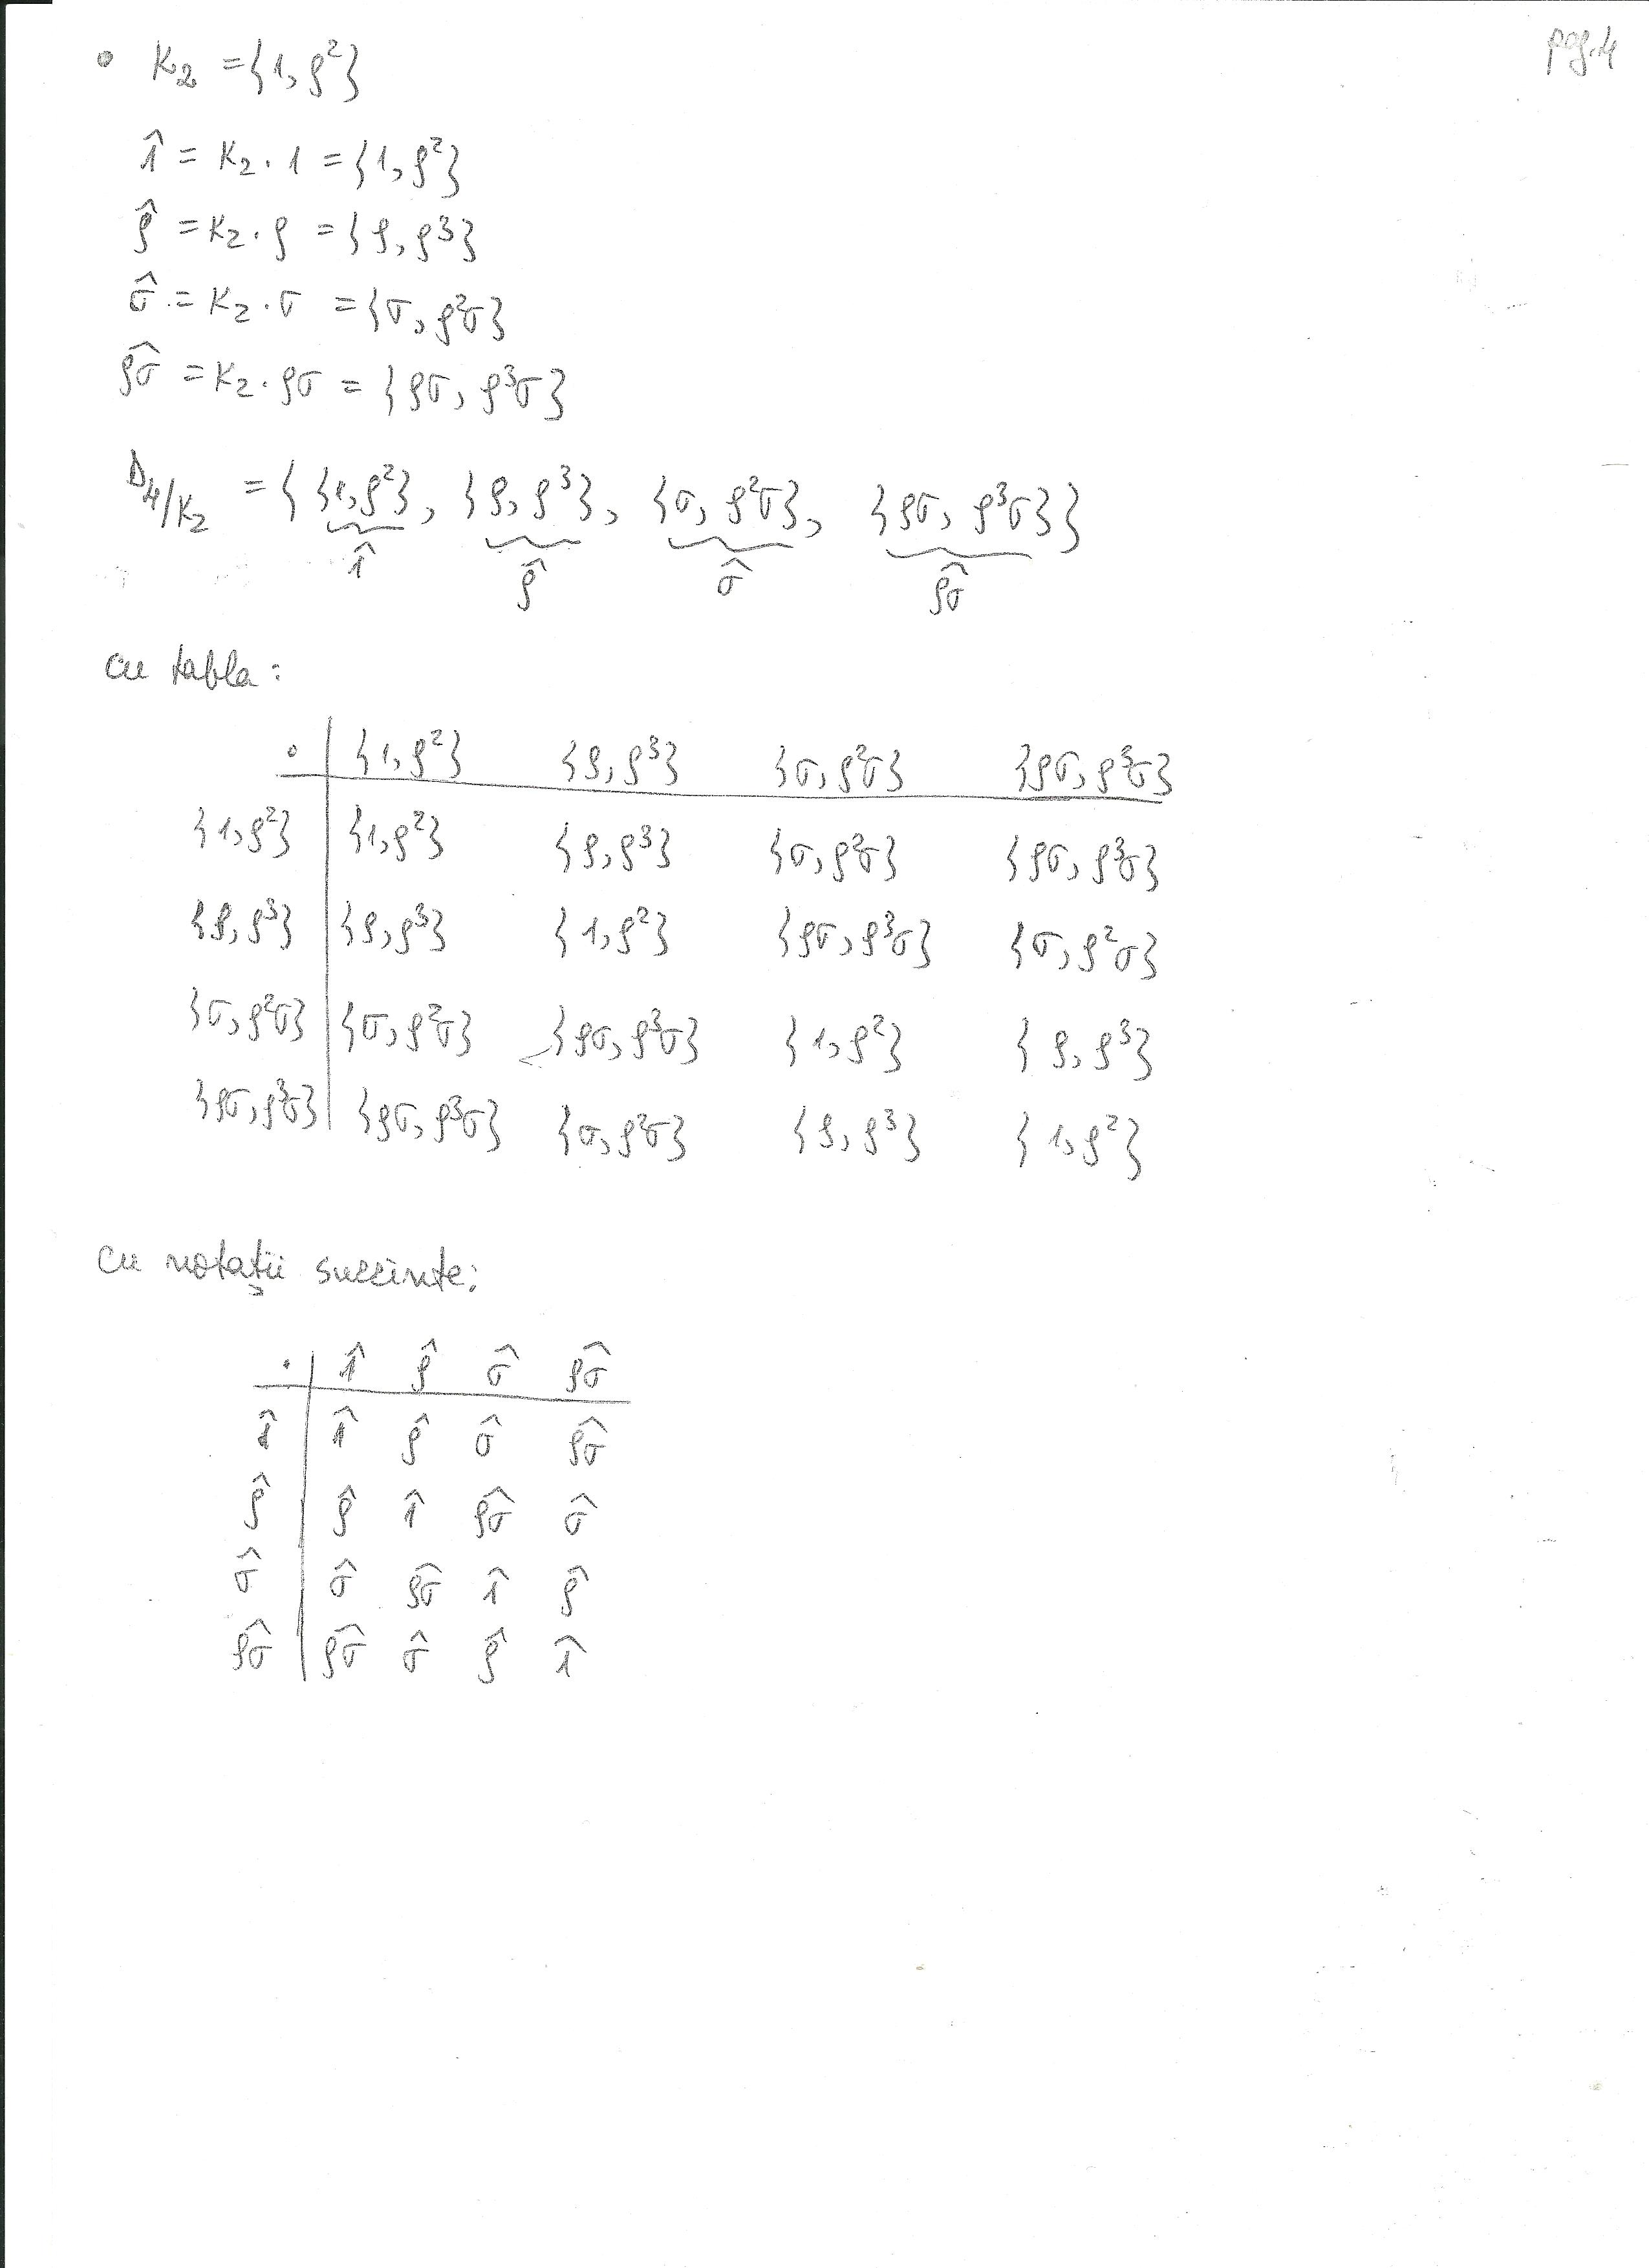 pag. 4
• K₂ = {1, ρ²}
1̂ = K₂ · 1 = {1, ρ²}
ρ̂ = K₂ · ρ = {ρ, ρ³}
σ̂ = K₂ · σ = {σ, ρ²σ}
ρσ̂ = K₂ · ρσ = {ρσ, ρ³σ}
D₄/K₂ = { {1, ρ²}, {ρ, ρ³}, {σ, ρ²σ}, {ρσ, ρ³σ} }
1̂ ρ̂ σ̂ ρσ̂
cu tabla:
∘ | {1, ρ²} {ρ, ρ³} {σ, ρ²σ} {ρσ, ρ³σ}
{1, ρ²} | {1, ρ²} {ρ, ρ³} {σ, ρ²σ} {ρσ, ρ³σ}
{ρ, ρ³} | {ρ, ρ³} {1, ρ²} {ρσ, ρ³σ} {σ, ρ²σ}
{σ, ρ²σ} | {σ, ρ²σ} {ρσ, ρ³σ} {1, ρ²} {ρ, ρ³}
{ρσ, ρ³σ} | {ρσ, ρ³σ} {σ, ρ²σ} {ρ, ρ³} {1, ρ²}
cu notații succinte:
· | 1̂ ρ̂ σ̂ ρσ̂
1̂ | 1̂ ρ̂ σ̂ ρσ̂
ρ̂ | ρ̂ 1̂ ρσ̂ σ̂
σ̂ | σ̂ ρσ̂ 1̂ ρ̂
ρσ̂ | ρσ̂ σ̂ ρ̂ 1̂